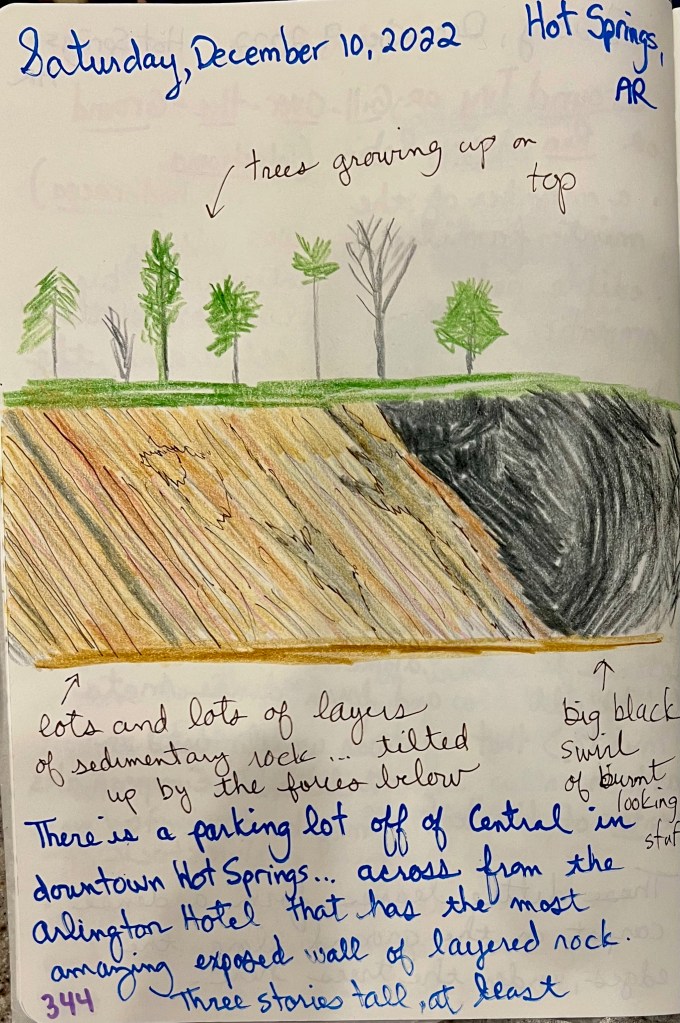 Saturday, December 10, 2022
Hot Springs,
AR
trees growing up on
top
lots and lots of layers
of sedimentary rock... tilted
up by the forces below
big black
swirl
of burnt
looking
stuf
There is a parking lot off of Central in
downtown Hot Springs... across from the
Arlington Hotel that has the most
amazing exposed wall of layered rock.
344
Three stories tall, at least